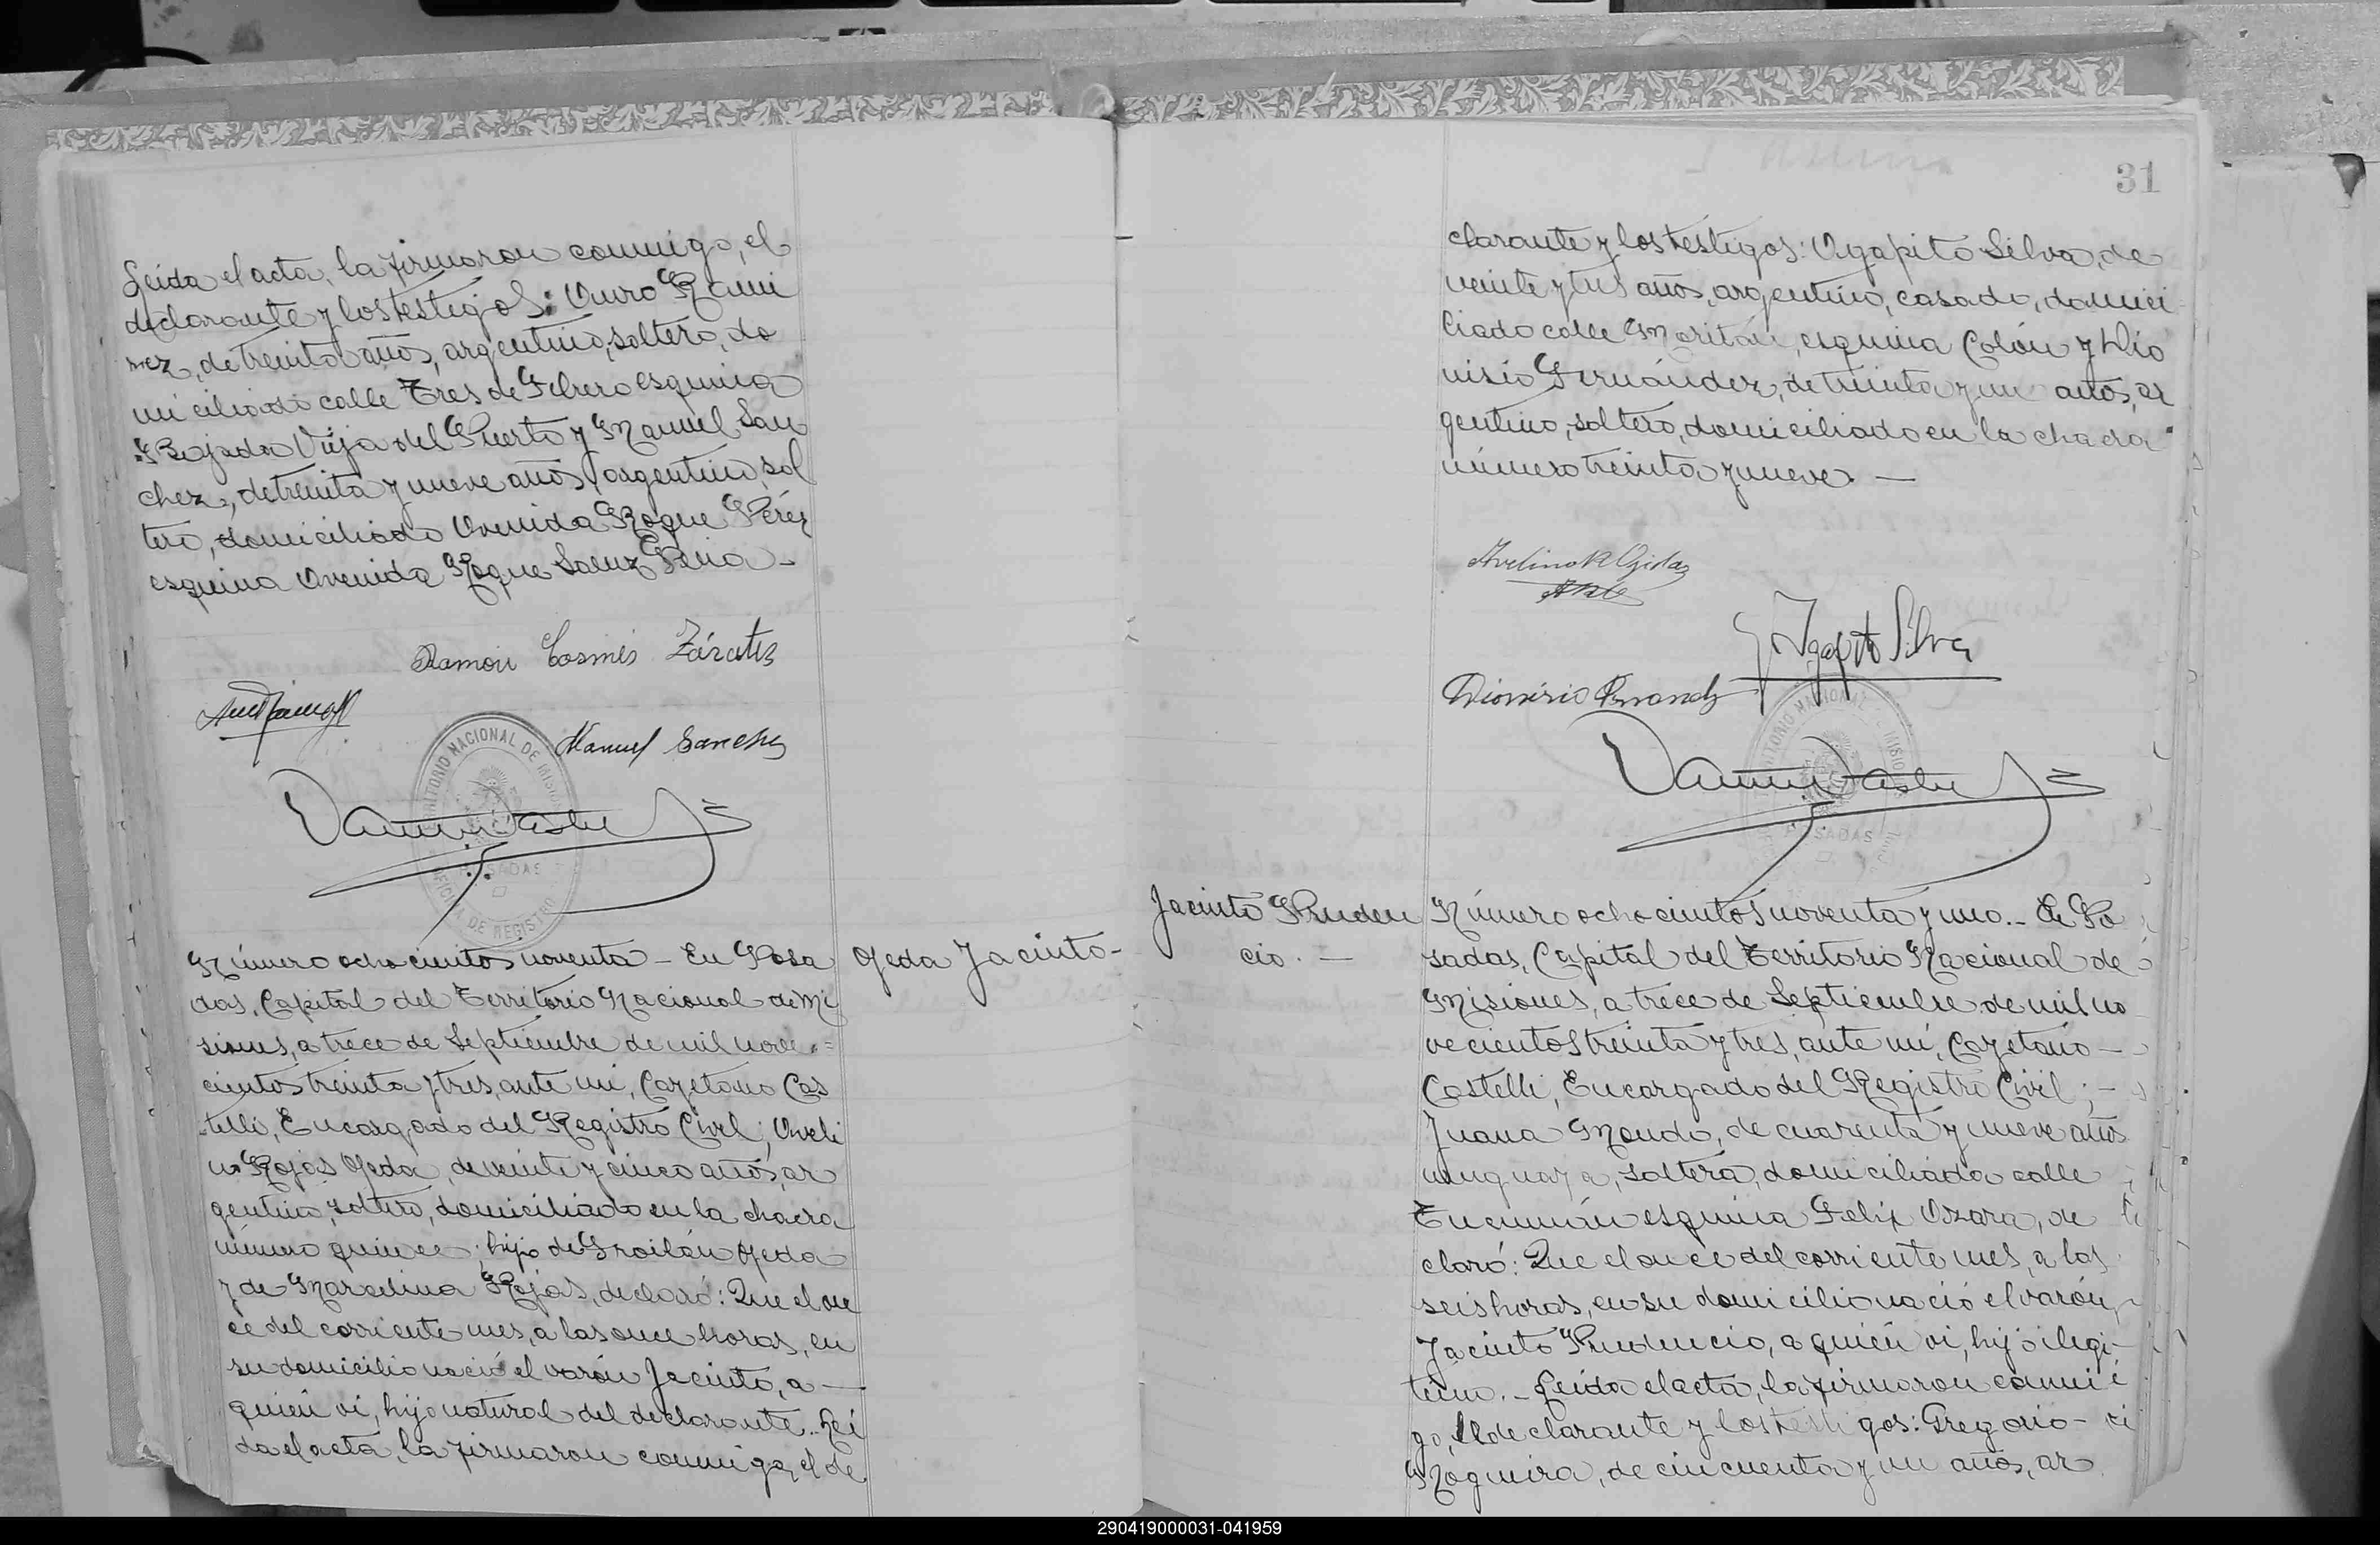 Leida el acta, la firmaron conmigo, el
declarante y los testigos: Amro Rami
rez, de treinta años, argentino, soltero, do
miciliado calle Tres de Febrero esquina
Bajada Vieja del Puerto y Manuel San
chez, de treinta y nueve años, argentino, sol
tero, domiciliado Avenida Roque Pérez
esquina Avenida Roque Saenz Peña -
Ramon Cosmes Zárate
Manuel Sanchez
TERRITORIO NACIONAL DE MISIONES
POSADAS
OFICIAL DE REGISTRO
Número ochocientos noventa - En Posa
das, Capital del Territorio Nacional de Mi
siones, a trece de Septiembre de mil nove =
cientos treinta y tres, ante mi, Cayetano Cas
telli, Encargado del Registro Civil; Aveli
no Rojas Ojeda, de veinte y cinco años, ar
gentino, soltero, domiciliado en la chacra
número quince; hijo de Froilán Ojeda
y de Marcelina Rojas, declaró: Que el on
ce del corriente mes, a las once horas, en
su domicilio nació el varón Jacinto, a -
quién vi, hijo natural del declarante. Lei
da el acta, la firmaron conmigo, el de
Ojeda Jacinto -
31
clarante y los testigos: Agapito Silva, de
veinte y tres años, argentino, casado, domici
liado calle San Martin, esquina Colón y Dio
nisio Fernández, de treinta y un años, ar
gentino, soltero, domiciliado en la chacra
número treinta y nueve. —
Avelino R Ojeda
Agapito Silva
Dionisio Fernandez
TERRITORIO NACIONAL DE MISIONES
POSADAS
Jacinto Pruden
cio. —
Número ochocientos noventa y uno. - En Po
sadas, Capital del Territorio Nacional de
Misiones, a trece de Septiembre de mil no
vecientos treinta y tres, ante mí, Cayetano -
Castelli, Encargado del Registro Civil; -
Juana Mondo, de cuarenta y nueve años
uruguaya, soltera, domiciliada calle
Tucumán esquina Felix Azara, de
claró: Que el once del corriente mes, a las
seis horas, en su domicilio nació el varón,
Jacinto Prudencio, a quién vi, hijo ilegi-
timo. - Leida el acta, la firmaron conmi
go, el declarante y los testigos: Gregorio -
Nogueira, de cincuenta y un años, ar
290419000031-041959